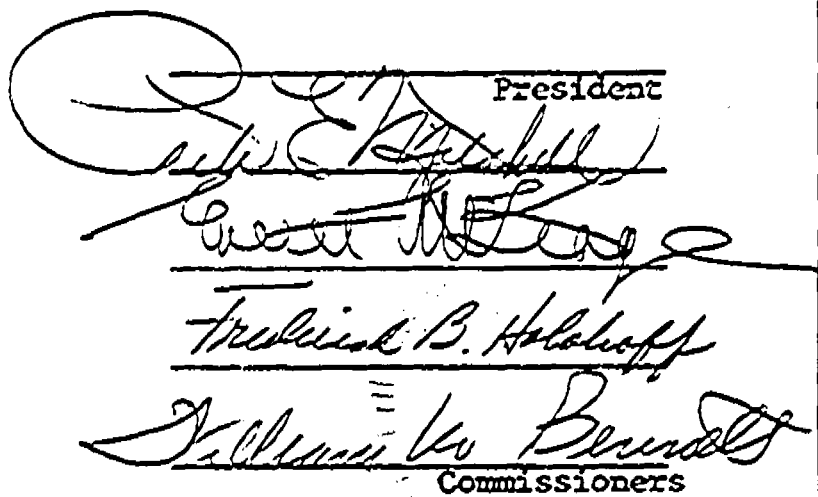 President
Peter E Mitchell
Everett McKeage
Frederick B. Holoboff
William M. Bennett
Commissioners